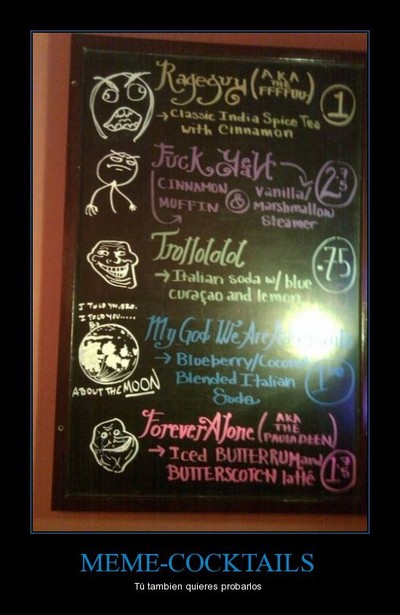 Rageguy (AKA THE FFFFUU) 1
→ Classic India Spice Tea
with Cinnamon
Fuck Yeah → 2 75
CINNAMON MUFFIN & Vanilla/ Marshmallow Steamer
Trollololol .75
→ Italian soda w/ blue
curaçao and lemon
I TOLD YA, BRO.
I TOLD YOU.....
ABOUT THE MOON
My God We Are
→ Blueberry/Coconut
Blended Italian
Soda
Forever Alone (AKA THE PAULA DEEN)
→ Iced BUTTERRUM and
BUTTERSCOTCH latte
MEME-COCKTAILS
Tú tambien quieres probarlos